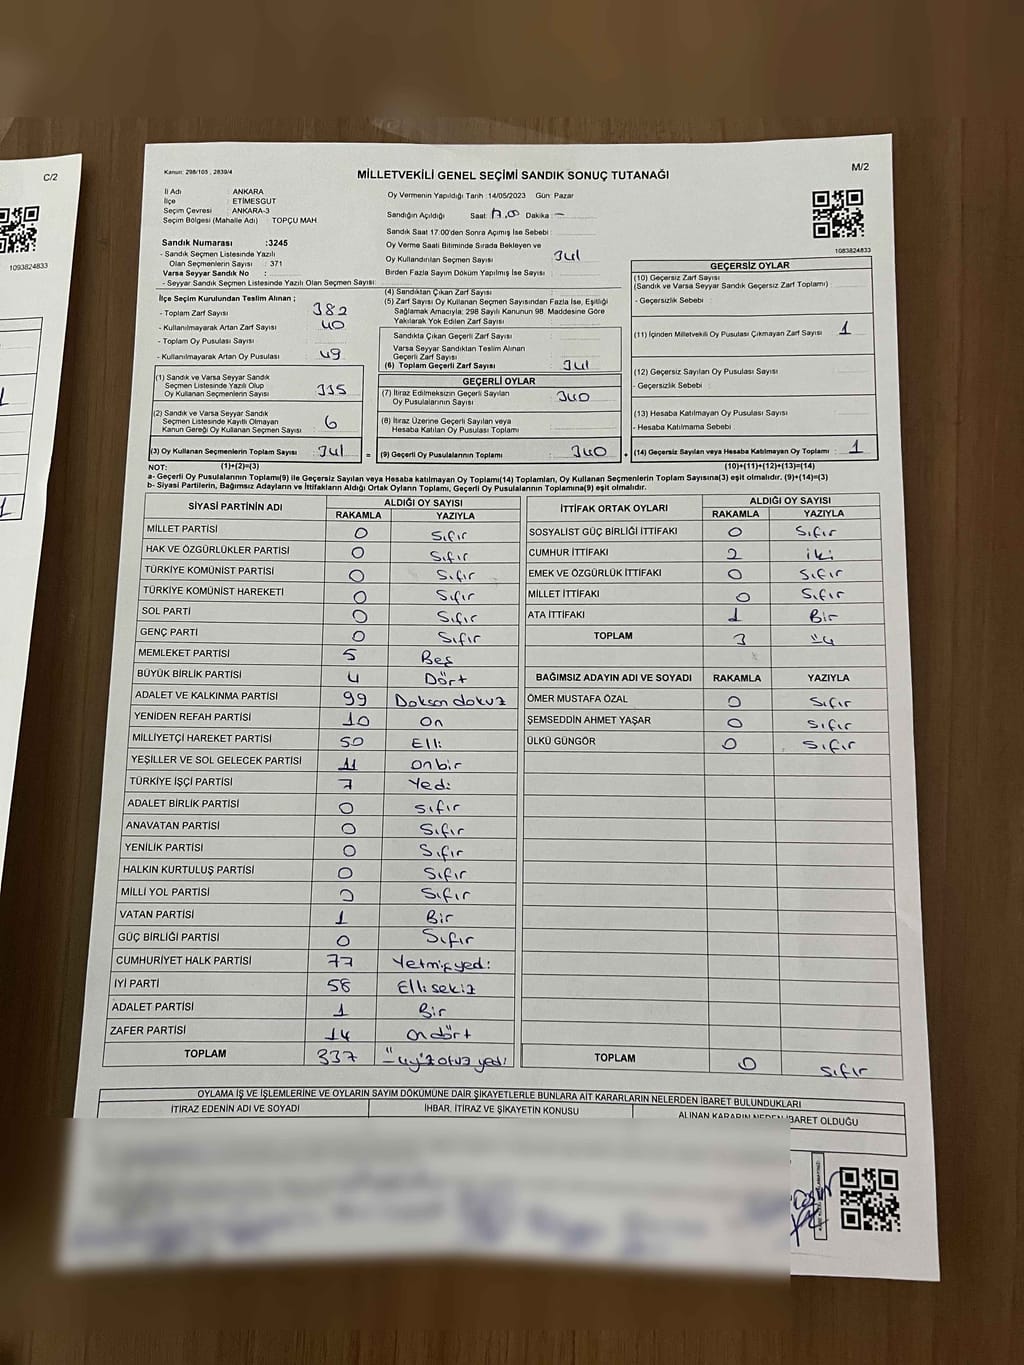 C/2
1093824833
1
1
Kanun: 298/105 , 2839/4
MİLLETVEKİLİ GENEL SEÇİMİ SANDIK SONUÇ TUTANAĞI
M/2
İl Adı : ANKARA
İlçe : ETİMESGUT
Seçim Çevresi : ANKARA-3
Seçim Bölgesi (Mahalle Adı) : TOPÇU MAH.
Oy Vermenin Yapıldığı Tarih :14/05/2023 Gün: Pazar
Sandığın Açıldığı Saat: 17.00 Dakika :–
Sandık Saat 17.00'den Sonra Açımış İse Sebebi :
Oy Verme Saati Bitiminde Sırada Bekleyen ve
Oy Kullandırılan Seçmen Sayısı : 341
Birden Fazla Sayım Döküm Yapılmış İse Sayısı :
1083824833
Sandık Numarası :3245
- Sandık Seçmen Listesinde Yazılı
Olan Seçmenlerin Sayısı : 371
Varsa Seyyar Sandık No :
- Seyyar Sandık Seçmen Listesinde Yazılı Olan Seçmen Sayısı:
İlçe Seçim Kurulundan Teslim Alınan ;
- Toplam Zarf Sayısı : 382
- Kullanılmayarak Artan Zarf Sayısı : 40
- Toplam Oy Pusulası Sayısı :
- Kullanılmayarak Artan Oy Pusulası : 49
(1) Sandık ve Varsa Seyyar Sandık
Seçmen Listesinde Yazılı Olup
Oy Kullanan Seçmenlerin Sayısı : 335
(2) Sandık ve Varsa Seyyar Sandık
Seçmen Listesinde Kayıtlı Olmayan
Kanun Gereği Oy Kullanan Seçmen Sayısı : 6
(3) Oy Kullanan Seçmenlerin Toplam Sayısı : 341 =
(4) Sandıktan Çıkan Zarf Sayısı :
(5) Zarf Sayısı Oy Kullanan Seçmen Sayısından Fazla İse, Eşitliği
Sağlamak Amacıyla; 298 Sayılı Kanunun 98. Maddesine Göre
Yakılarak Yok Edilen Zarf Sayısı :
Sandıkta Çıkan Geçerli Zarf Sayısı :
Varsa Seyyar Sandıktan Teslim Alınan
Geçerli Zarf Sayısı :
(6) Toplam Geçerli Zarf Sayısı : 341
GEÇERLİ OYLAR
(7) İtiraz Edilmeksizin Geçerli Sayılan
Oy Pusulalarının Sayısı : 340
(8) İtiraz Üzerine Geçerli Sayılan veya
Hesaba Katılan Oy Pusulası Toplamı :
(9) Geçerli Oy Pusulalarının Toplamı : 340 +
GEÇERSİZ OYLAR
(10) Geçersiz Zarf Sayısı
(Sandık ve Varsa Seyyar Sandık Geçersiz Zarf Toplamı) :
- Geçersizlik Sebebi :
(11) İçinden Milletvekili Oy Pusulası Çıkmayan Zarf Sayısı : 1
(12) Geçersiz Sayılan Oy Pusulası Sayısı :
- Geçersizlik Sebebi :
(13) Hesaba Katılmayan Oy Pusulası Sayısı :
- Hesaba Katılmama Sebebi :
(14) Geçersiz Sayılan veya Hesaba Katılmayan Oy Toplamı : 1
NOT: (1)+(2)=(3) (10)+(11)+(12)+(13)=(14)
a- Geçerli Oy Pusulalarının Toplamı(9) ile Geçersiz Sayılan veya Hesaba katılmayan Oy Toplamı(14) Toplamları, Oy Kullanan Seçmenlerin Toplam Sayısına(3) eşit olmalıdır. (9)+(14)=(3)
b- Siyasi Partilerin, Bağımsız Adayların ve İttifakların Aldığı Ortak Oyların Toplamı, Geçerli Oy Pusulalarının Toplamına(9) eşit olmalıdır.
SİYASİ PARTİNİN ADI ALDIĞI OY SAYISI
RAKAMLA YAZIYLA
MİLLET PARTİSİ 0 Sıfır
HAK VE ÖZGÜRLÜKLER PARTİSİ 0 Sıfır
TÜRKİYE KOMÜNİST PARTİSİ 0 Sıfır
TÜRKİYE KOMÜNİST HAREKETİ 0 Sıfır
SOL PARTİ 0 Sıfır
GENÇ PARTİ 0 Sıfır
MEMLEKET PARTİSİ 5 Beş
BÜYÜK BİRLİK PARTİSİ 4 Dört
ADALET VE KALKINMA PARTİSİ 99 Doksan dokuz
YENİDEN REFAH PARTİSİ 10 On
MİLLİYETÇİ HAREKET PARTİSİ 50 Elli
YEŞİLLER VE SOL GELECEK PARTİSİ 11 onbir
TÜRKİYE İŞÇİ PARTİSİ 7 Yedi
ADALET BİRLİK PARTİSİ 0 sıfır
ANAVATAN PARTİSİ 0 Sıfır
YENİLİK PARTİSİ 0 Sıfır
HALKIN KURTULUŞ PARTİSİ 0 Sıfır
MİLLİ YOL PARTİSİ 0 Sıfır
VATAN PARTİSİ 1 Bir
GÜÇ BİRLİĞİ PARTİSİ 0 Sıfır
CUMHURİYET HALK PARTİSİ 77 Yetmişyedi
İYİ PARTİ 58 Ellisekiz
ADALET PARTİSİ 1 Bir
ZAFER PARTİSİ 14 Ondört
TOPLAM 337 üçyüz otuz yedi
İTTİFAK ORTAK OYLARI ALDIĞI OY SAYISI
RAKAMLA YAZIYLA
SOSYALİST GÜÇ BİRLİĞİ İTTİFAKI 0 Sıfır
CUMHUR İTTİFAKI 2 iki
EMEK VE ÖZGÜRLÜK İTTİFAKI 0 Sıfır
MİLLET İTTİFAKI 0 Sıfır
ATA İTTİFAKI 1 Bir
TOPLAM 3 üç
BAĞIMSIZ ADAYIN ADI VE SOYADI RAKAMLA YAZIYLA
ÖMER MUSTAFA ÖZAL 0 Sıfır
ŞEMSEDDİN AHMET YAŞAR 0 Sıfır
ÜLKÜ GÜNGÖR 0 Sıfır
TOPLAM 0 Sıfır
OYLAMA İŞ VE İŞLEMLERİNE VE OYLARIN SAYIM DÖKÜMÜNE DAİR ŞİKAYETLERLE BUNLARA AİT KARARLARIN NELERDEN İBARET BULUNDUKLARI
İTİRAZ EDENİN ADI VE SOYADI İHBAR, İTİRAZ VE ŞİKAYETİN KONUSU ALINAN KARARIN NEDEN İBARET OLDUĞU